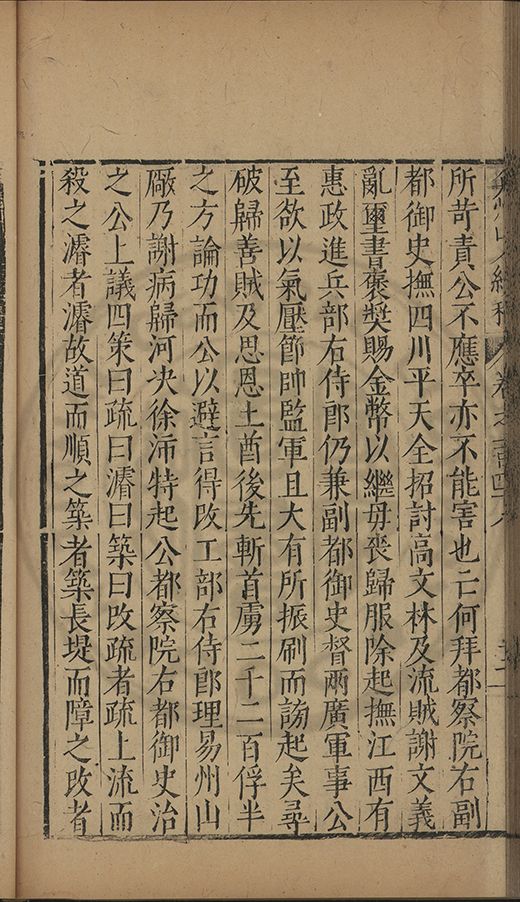 所苛責公不應卒亦不能害也亡何拜都察院右副
都御史撫四川平天全招討高文林及流賊謝文義
亂璽書褒奬賜金幣以繼母喪歸服除起撫江西有
惠政進兵部右侍郎仍兼副都御史督兩廣軍事公
至欲以氣壓節帥監軍且大有所振刷而謗起矣尋
破歸善賊及思恩土酋後先斬首虜二千二百俘半
之方論功而公以避言得改工部右侍郎理易州山
厰乃謝病歸河决徐沛特起公都察院右都御史治
之公上議四策曰疏曰濬曰築曰改疏者疏上流而
殺之濬者濬故道而順之築者築長堤而障之改者